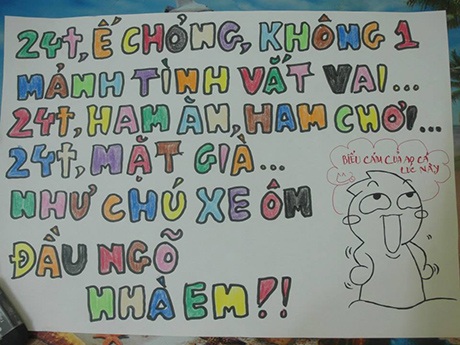 24t, Ế CHỎNG, KHÔNG 1
MẢNH TÌNH VẮT VAI...
24t, HAM ĂN, HAM CHƠI...
24t, MẶT GIÀ...
NHƯ CHÚ XE ÔM
ĐẦU NGÕ
NHÀ EM!!
BIỂU CẢM CỦA AQ CẢ
LÚC NÀY